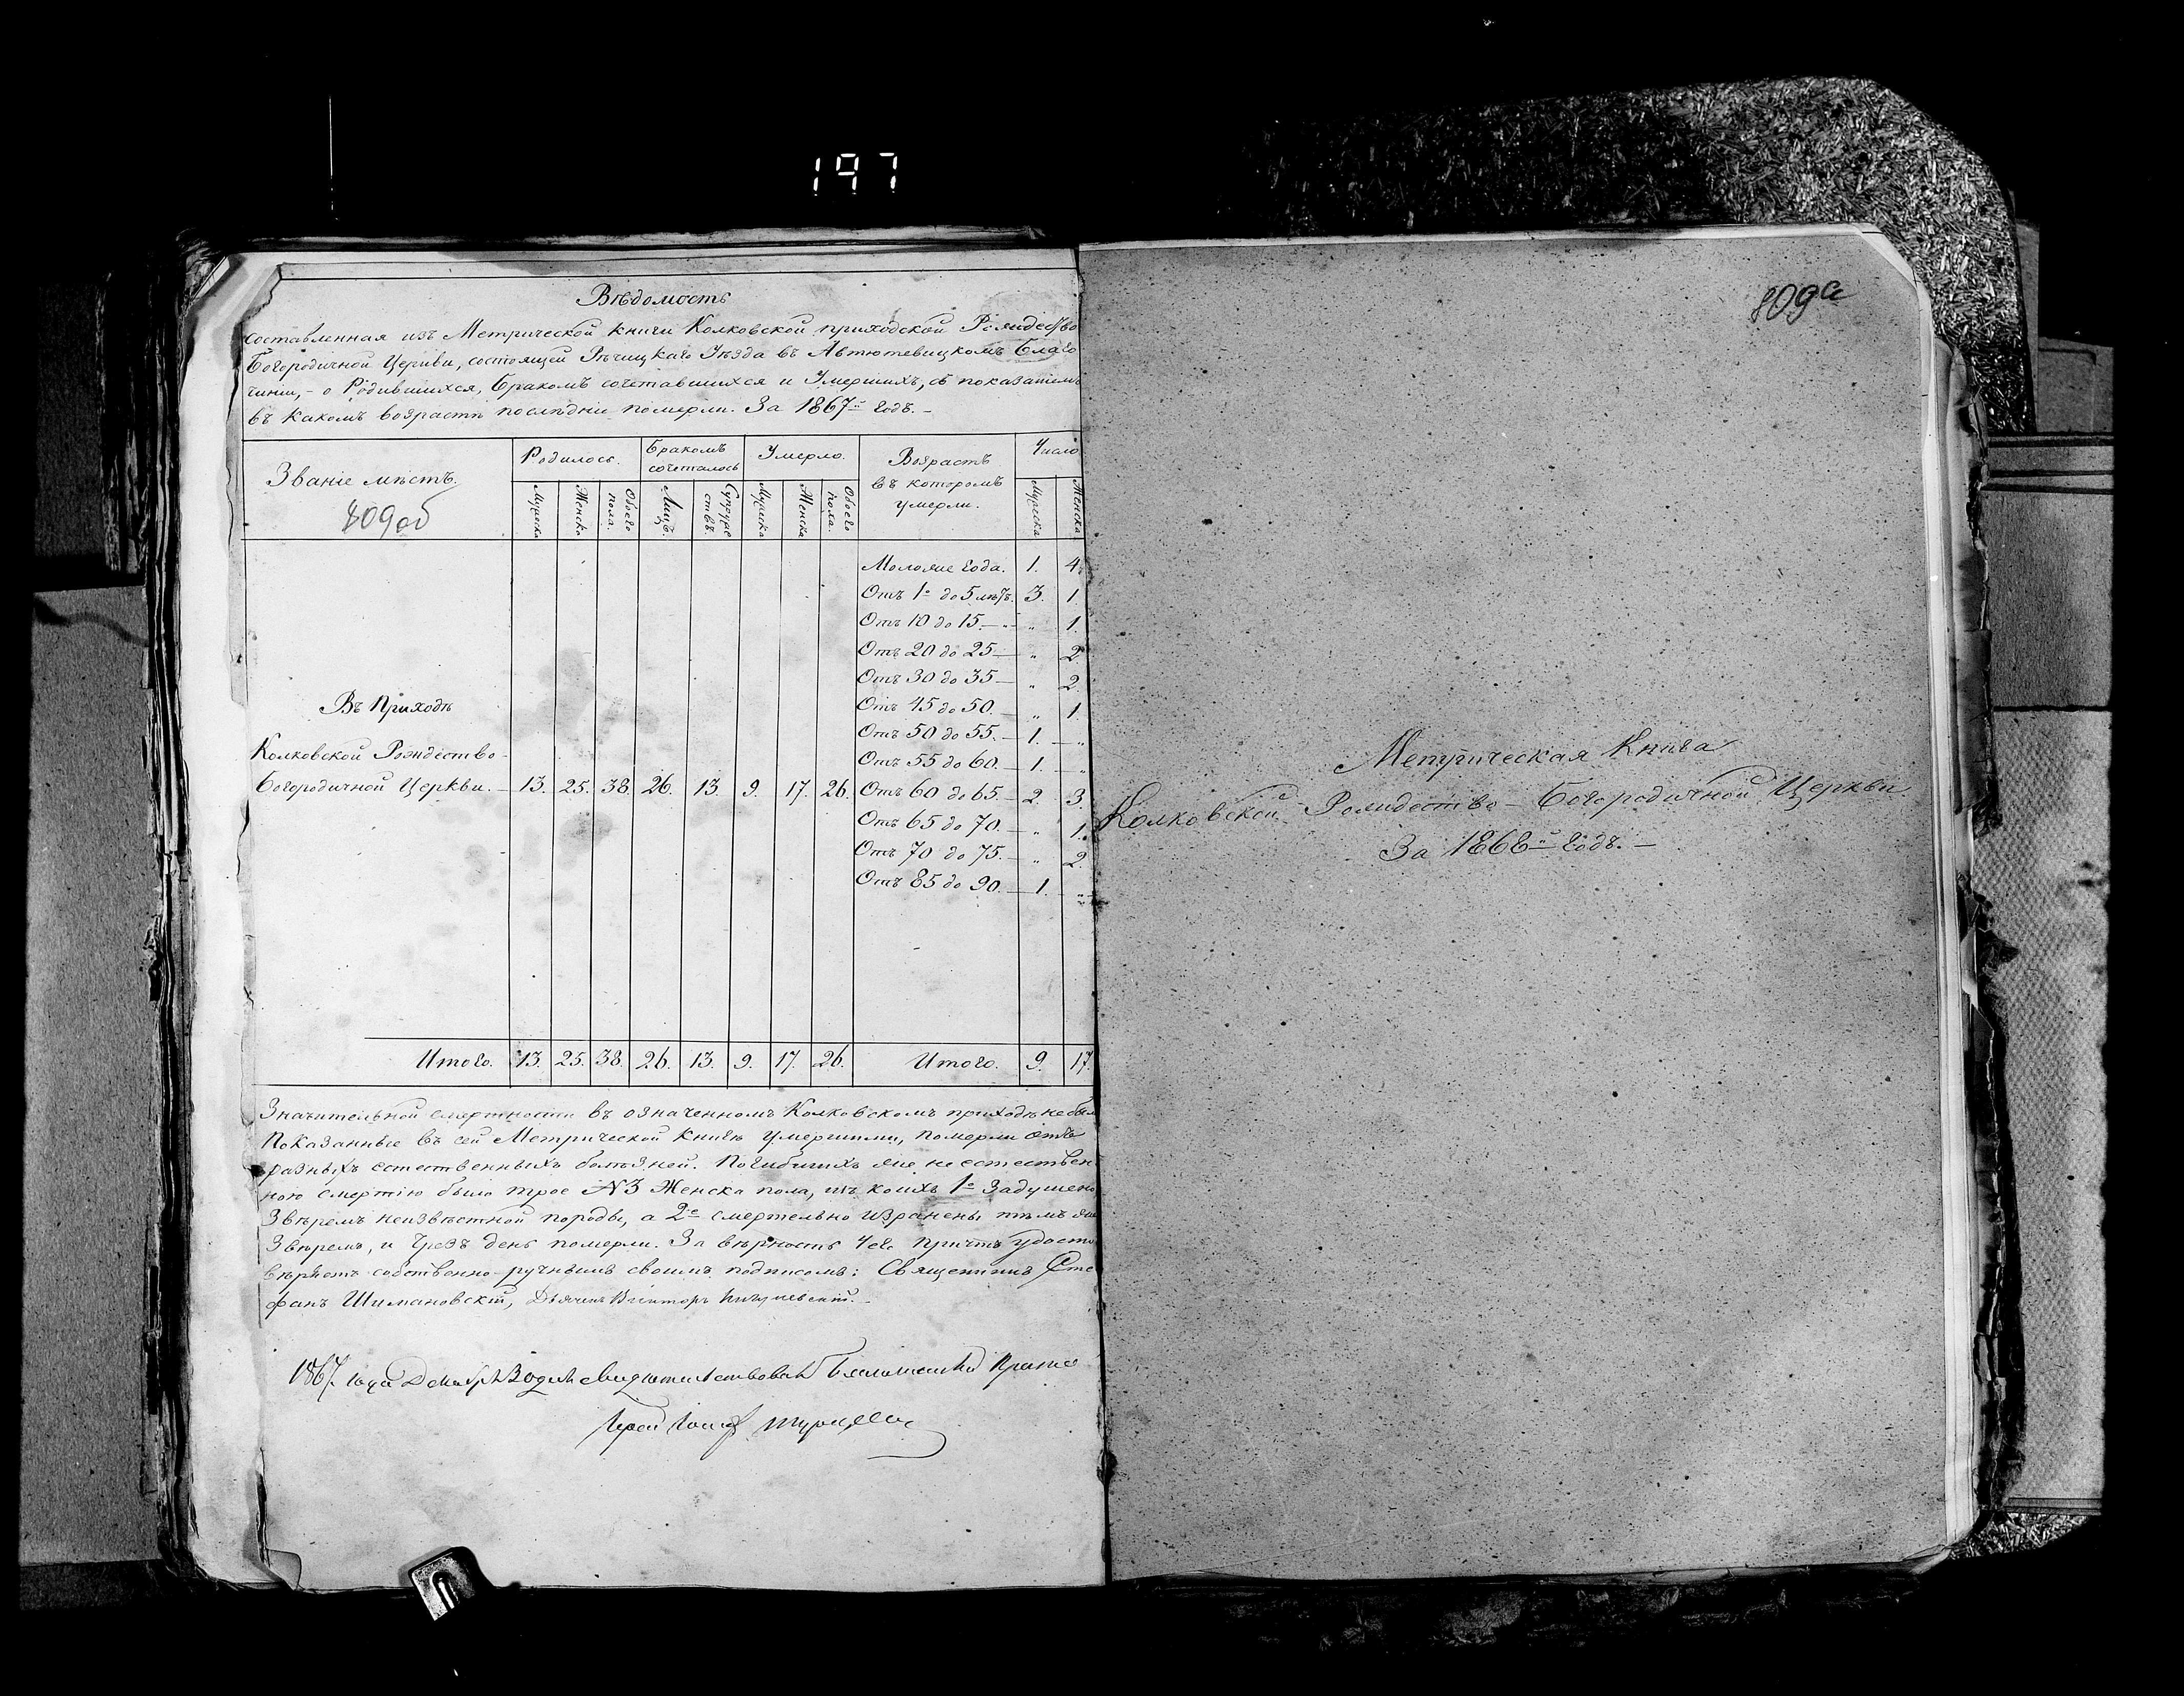 197
Вѣдомость
составленная изъ Метрической книги Колковской приходской Рождество
Богородичной Церкви, состоящей Рѣчицкаго Уѣзда въ Автютевицкомъ Благо
чиніи, - о Родившихся, бракомъ сочетавшихся и Умершихъ, съ показаніемъ
въ какомъ возрастѣ послѣдніе померли. За 1867й годъ. -
Званіе мѣстъ. Родилось. Бракомъ сочеталось Умерло. Возрастъ въ которомъ умерли. Число
Мужеска Женска Обоего пола. Лицъ. Супружествъ. Мужеска Женска Обоего пола. Мужеска Женска
809об
Моложе года. 1. 4.
Отъ 1º до 5 лѣтъ. 3. 1.
Отъ 10 до 15 — „ 1.
Отъ 20 до 25 — „ 2.
Отъ 30 до 35 — „ 2.
Отъ 45 до 50. — „ 1.
Отъ 50 до 55. — 1. — „
Отъ 55 до 60. — 1. — „
Отъ 60 до 65. — 2. 3.
Отъ 65 до 70. — „ 1.
Отъ 70 до 75. — „ 2.
Отъ 85 до 90. — 1. „
Въ Приходѣ
Колковской Рождество-
Богородичной Церкви. — 13. 25. 38. 26. 13. 9. 17. 26.
Итого. 13. 25. 38. 26. 13. 9. 17. 26. Итого. 9. 17.
Значительной смертности въ означенномъ Колковскомъ приходѣ не был
Показанные въ сей Метрической книгѣ умершими, померли отъ
разныхъ естественныхъ болѣзней. Погибшихъ же не естествен
ною смертію было трое №3 Женска пола, изъ коихъ 1º Задушено
Звѣремъ неизвѣстной породы, а 2е смертельно изранены тѣмъ же
Звѣремъ, и чрезъ день померли. За вѣрность чего причтъ удосто
вѣряетъ собственно-ручнымъ своимъ подписомъ: Священникъ Сте
фанъ Шимановскій, Дьячекъ Викторъ
1867. года Декабря
809а
Метрическая Книга
Колковской Рождество-Богородичной Церкви
За 1868й годъ. —